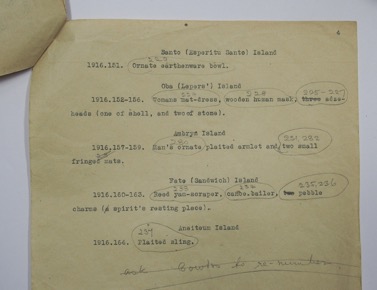 4
Santo (Espiritu Santo) Island
1916.151. Ornate earthenware bowl.
Oba (Lepers') Island
1916.152-156. Womans mat-dress, wooden human mask, three adze-
heads (one of shell, and two of stone).
225-227
Ambrym Island
231,232
1916.157-159. Man's ornate plaited armlet and two small
fringed mats.
Fate (Sandwich) Island
235,236
1916.160-163. Reed yam-scraper, pebble
charms (a spirit's resting place).
237 Aneiteum Island
1916.164. Plaited sling.
ask to re-number